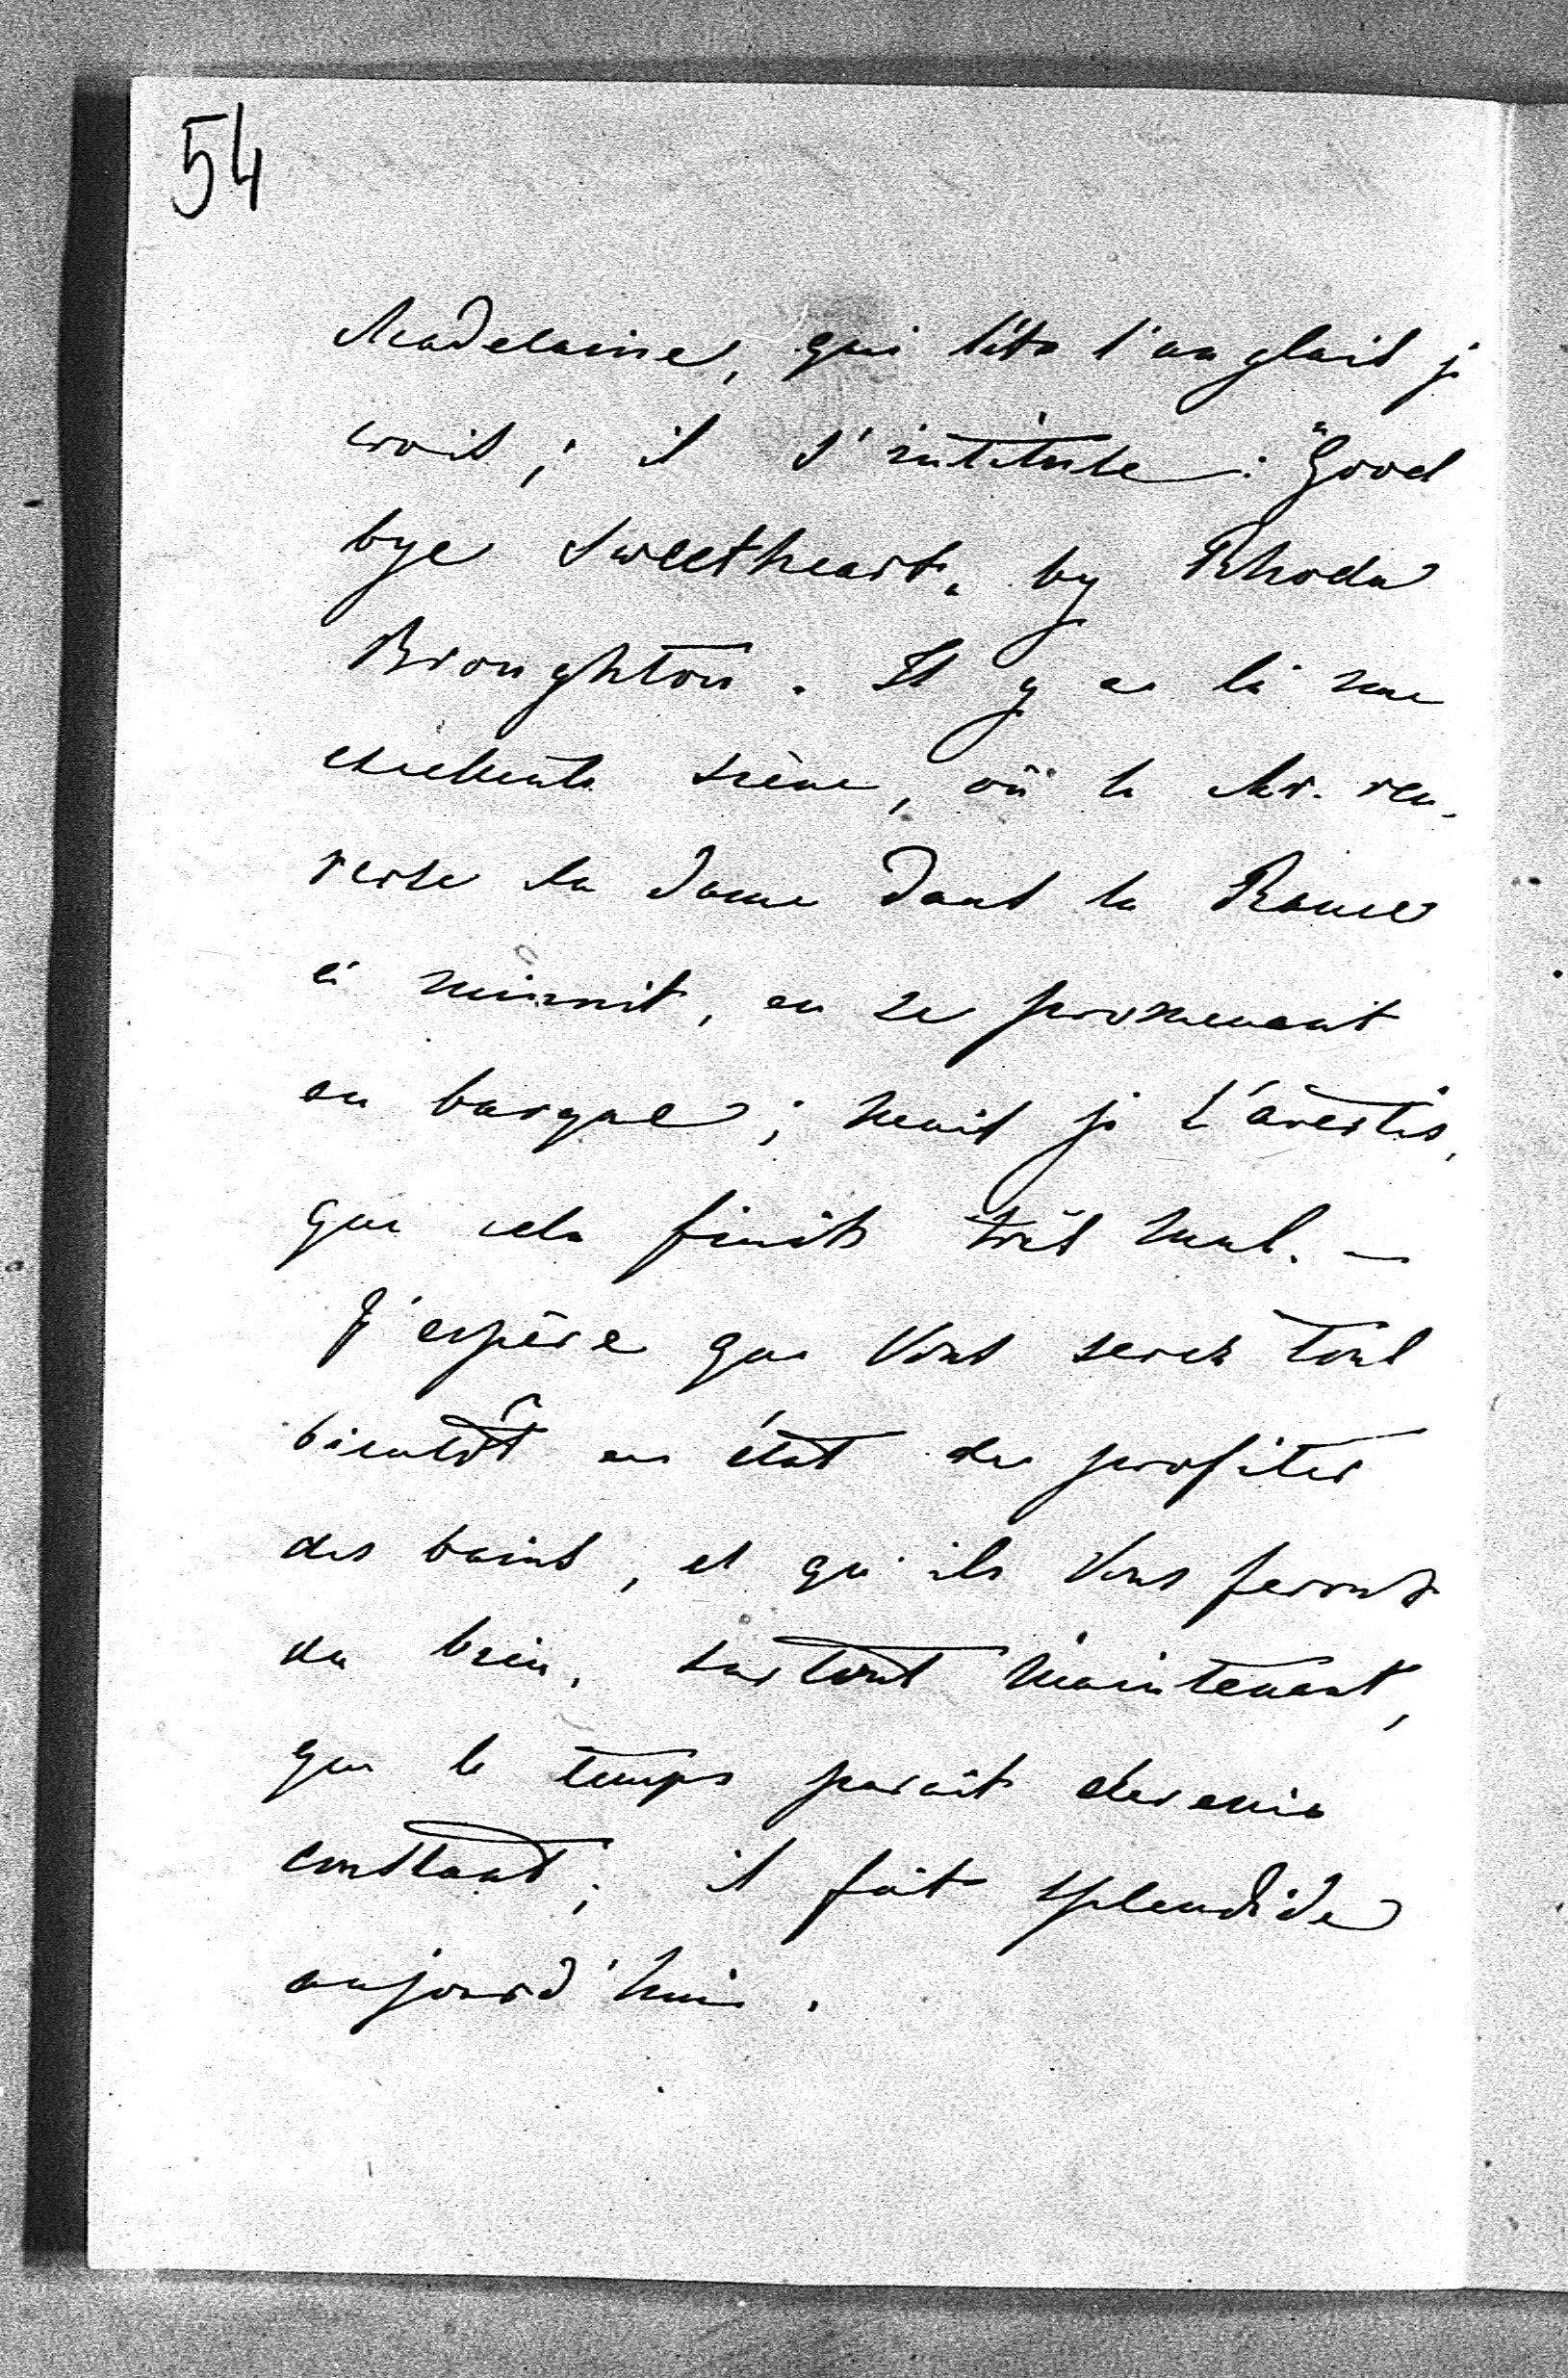 54
Madelaine, qui lit l'anglais je
crois ; il s'intitule : "Good
bye sweetheart" by Rhoda
Broughton. Il y a là une
excellente scène, où le Mr. ren-
verse la dame dans la Rance
à minuit, en se promenant
en barque ; mais je t'avertis,
que cela finit très mal. —
J'espère que Vous serez tous
bientôt en état de profiter
des bains, et qu'ils Vous feront
du bien, surtout maintenant,
que le temps paraît devenir
constant ; il fait splendide
aujourd'hui.